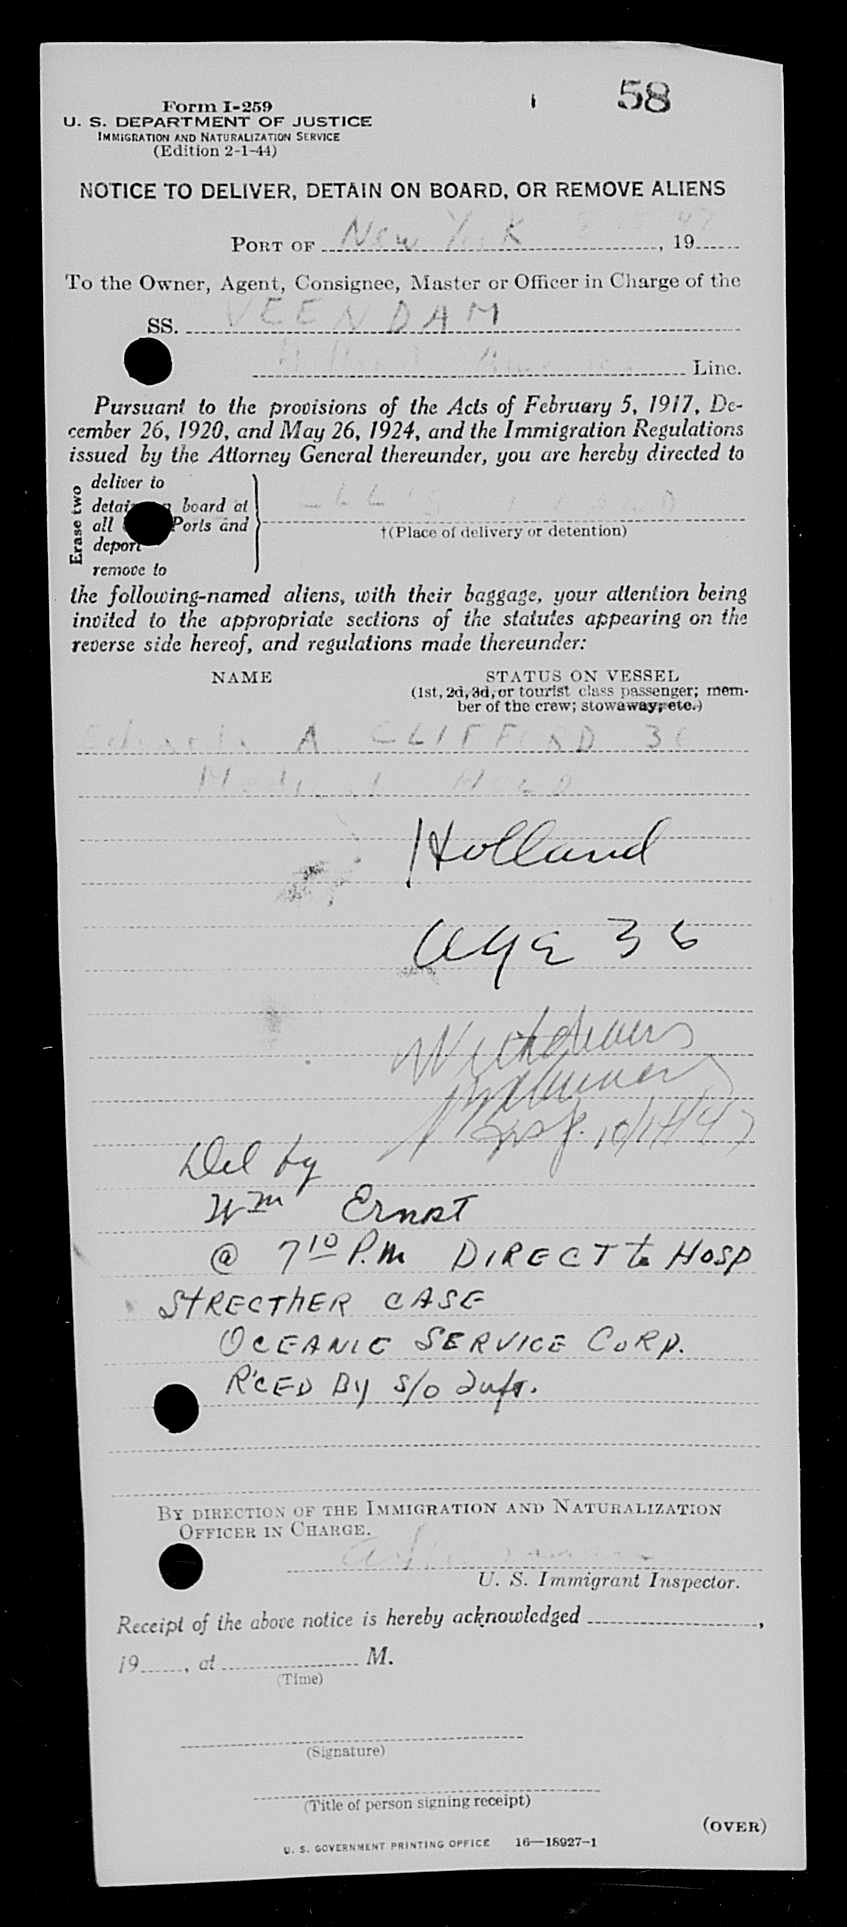 58
Form I-259
U. S. DEPARTMENT OF JUSTICE
IMMIGRATION AND NATURALIZATION SERVICE
(Edition 2-1-44)
NOTICE TO DELIVER, DETAIN ON BOARD, OR REMOVE ALIENS
PORT OF New York, 1947
To the Owner, Agent, Consignee, Master or Officer in Charge of the
SS. VEENDAM
Line.
Pursuant to the provisions of the Acts of February 5, 1917, De-
cember 26, 1920, and May 26, 1924, and the Immigration Regulations
issued by the Attorney General thereunder, you are hereby directed to
Erase two
deliver to
board at
all Ports and
deport
remove to
ELLIS ISLAND
†(Place of delivery or detention)
the following-named aliens, with their baggage, your attention being
invited to the appropriate sections of the statutes appearing on the
reverse side hereof, and regulations made thereunder:
NAME
STATUS ON VESSEL
(1st, 2d, 3d, or tourist class passenger; mem-
ber of the crew; stowaway, etc.)
A. CLIFFORD 36
Medical HOLD
Holland
Age 36
10/14/47
Del by
Wm Ernst
@ 7 10 P.M DIRECT to HOSP
STRECTHER CASE
OCEANIC SERVICE CORP.
R'CED BY S/O
BY DIRECTION OF THE IMMIGRATION AND NATURALIZATION
OFFICER IN CHARGE.
U. S. Immigrant Inspector.
Receipt of the above notice is hereby acknowledged ,
19 , at M.
(Time)
(Signature)
(Title of person signing receipt)
(OVER)
U. S. GOVERNMENT PRINTING OFFICE 16—18927-1